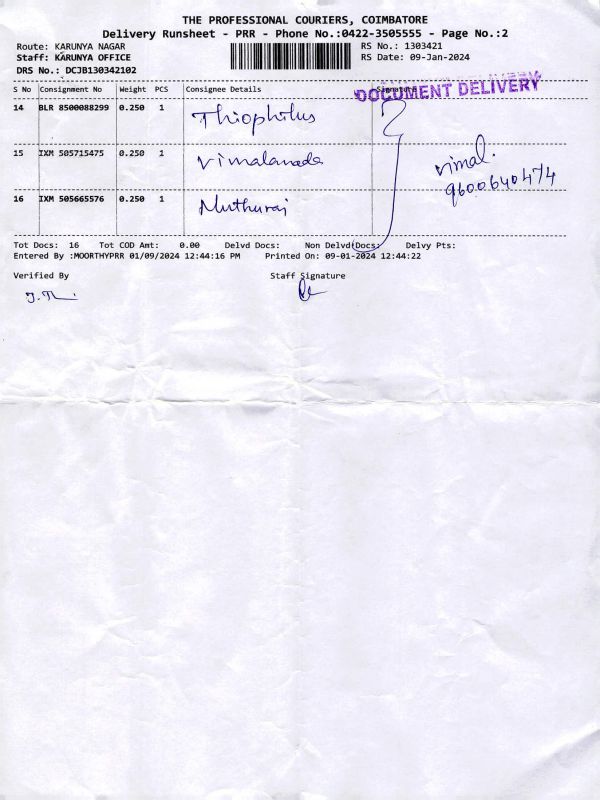 THE PROFESSIONAL COURIERS, COIMBATORE
Delivery Runsheet - PRR - Phone No.:0422-3505555 - Page No.:2
Route: KARUNYA NAGAR RS No.: 1303421
Staff: KARUNYA OFFICE RS Date: 09-Jan-2024
DRS No.: DCJB130342102
DOCUMENT DELIVERY
S No Consignment No Weight PCS Consignee Details Signature
14 BLR 8500088299 0.250 1 Thiophilus
15 IXM 505715475 0.250 1 Vimalanada
vimal.
9600640474
16 IXM 505665576 0.250 1 Muthuraj
Tot Docs: 16 Tot COD Amt: 0.00 Delvd Docs: Non Delvd Docs: Delvy Pts:
Entered By :MOORTHYPRR 01/09/2024 12:44:16 PM Printed On: 09-01-2024 12:44:22
Verified By Staff Signature